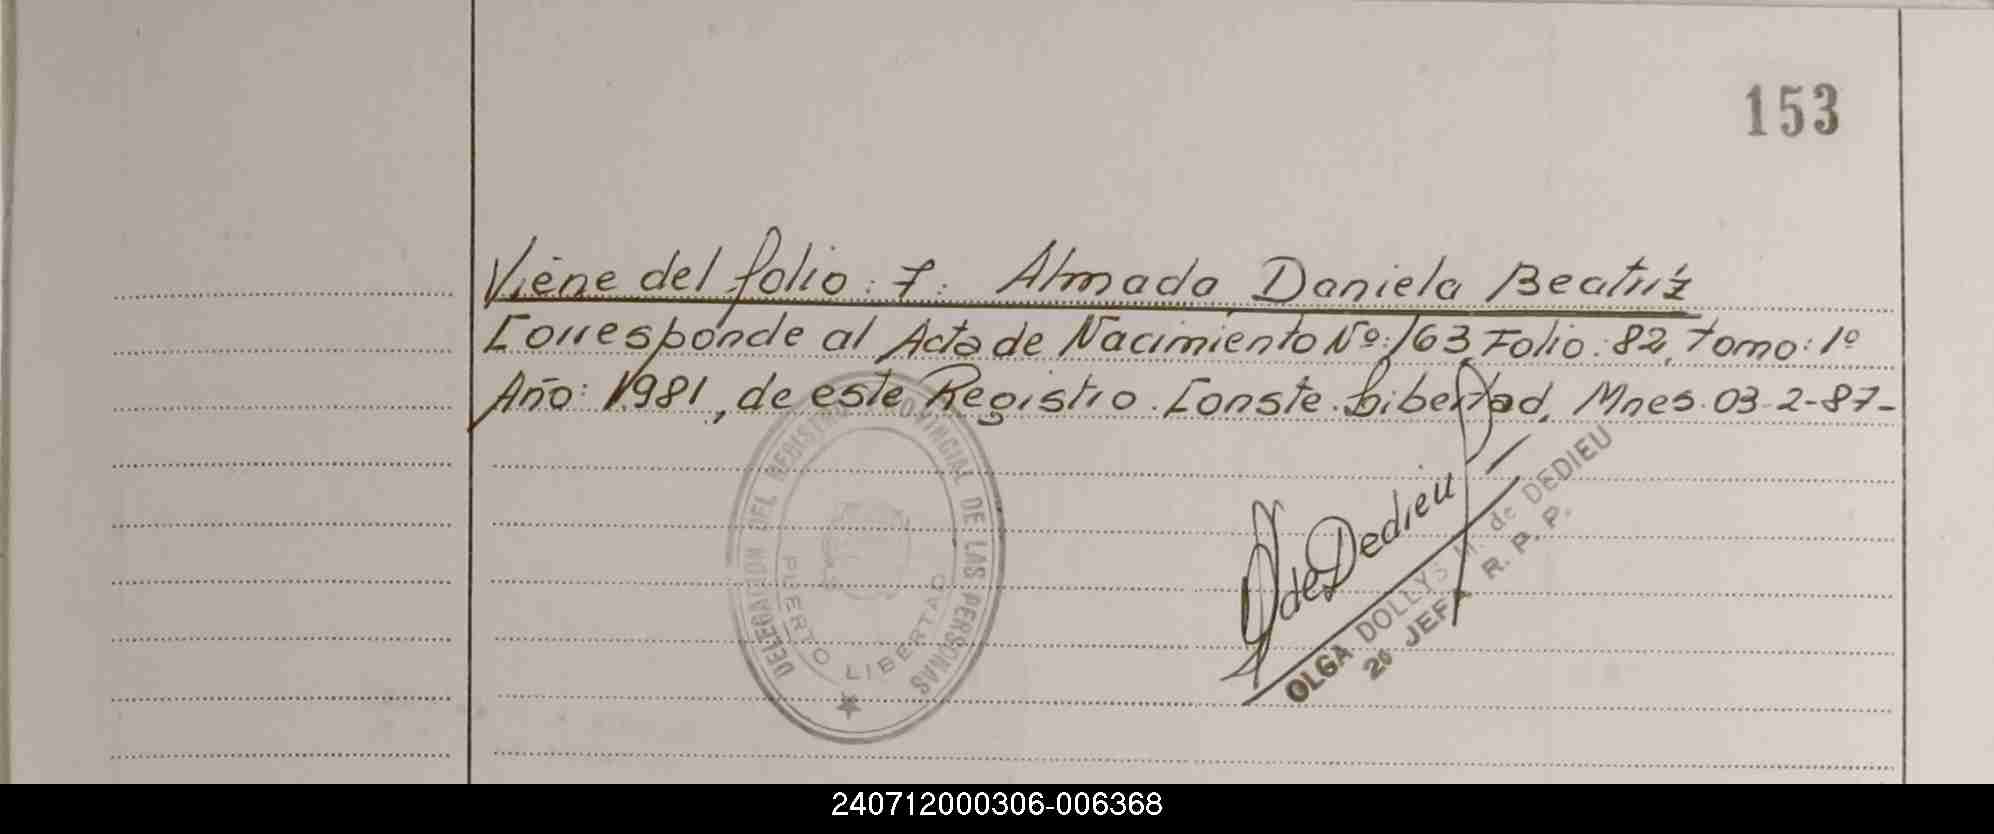 153
Viene del folio: 7: Almada Daniela Beatriz
Corresponde al Acta de Nacimiento Nº: 163 Folio: 82, Tomo: 1º
Año: 1981, de este Registro. Conste. Libertad, Mnes. 03-2-87-
DELEGACION DEL REGISTRO PROVINCIAL DE LAS PERSONAS
PUERTO LIBERTAD
de Dedieu
OLGA DOLLYS de DEDIEU
JEFA R. P. P.
240712000306-006368